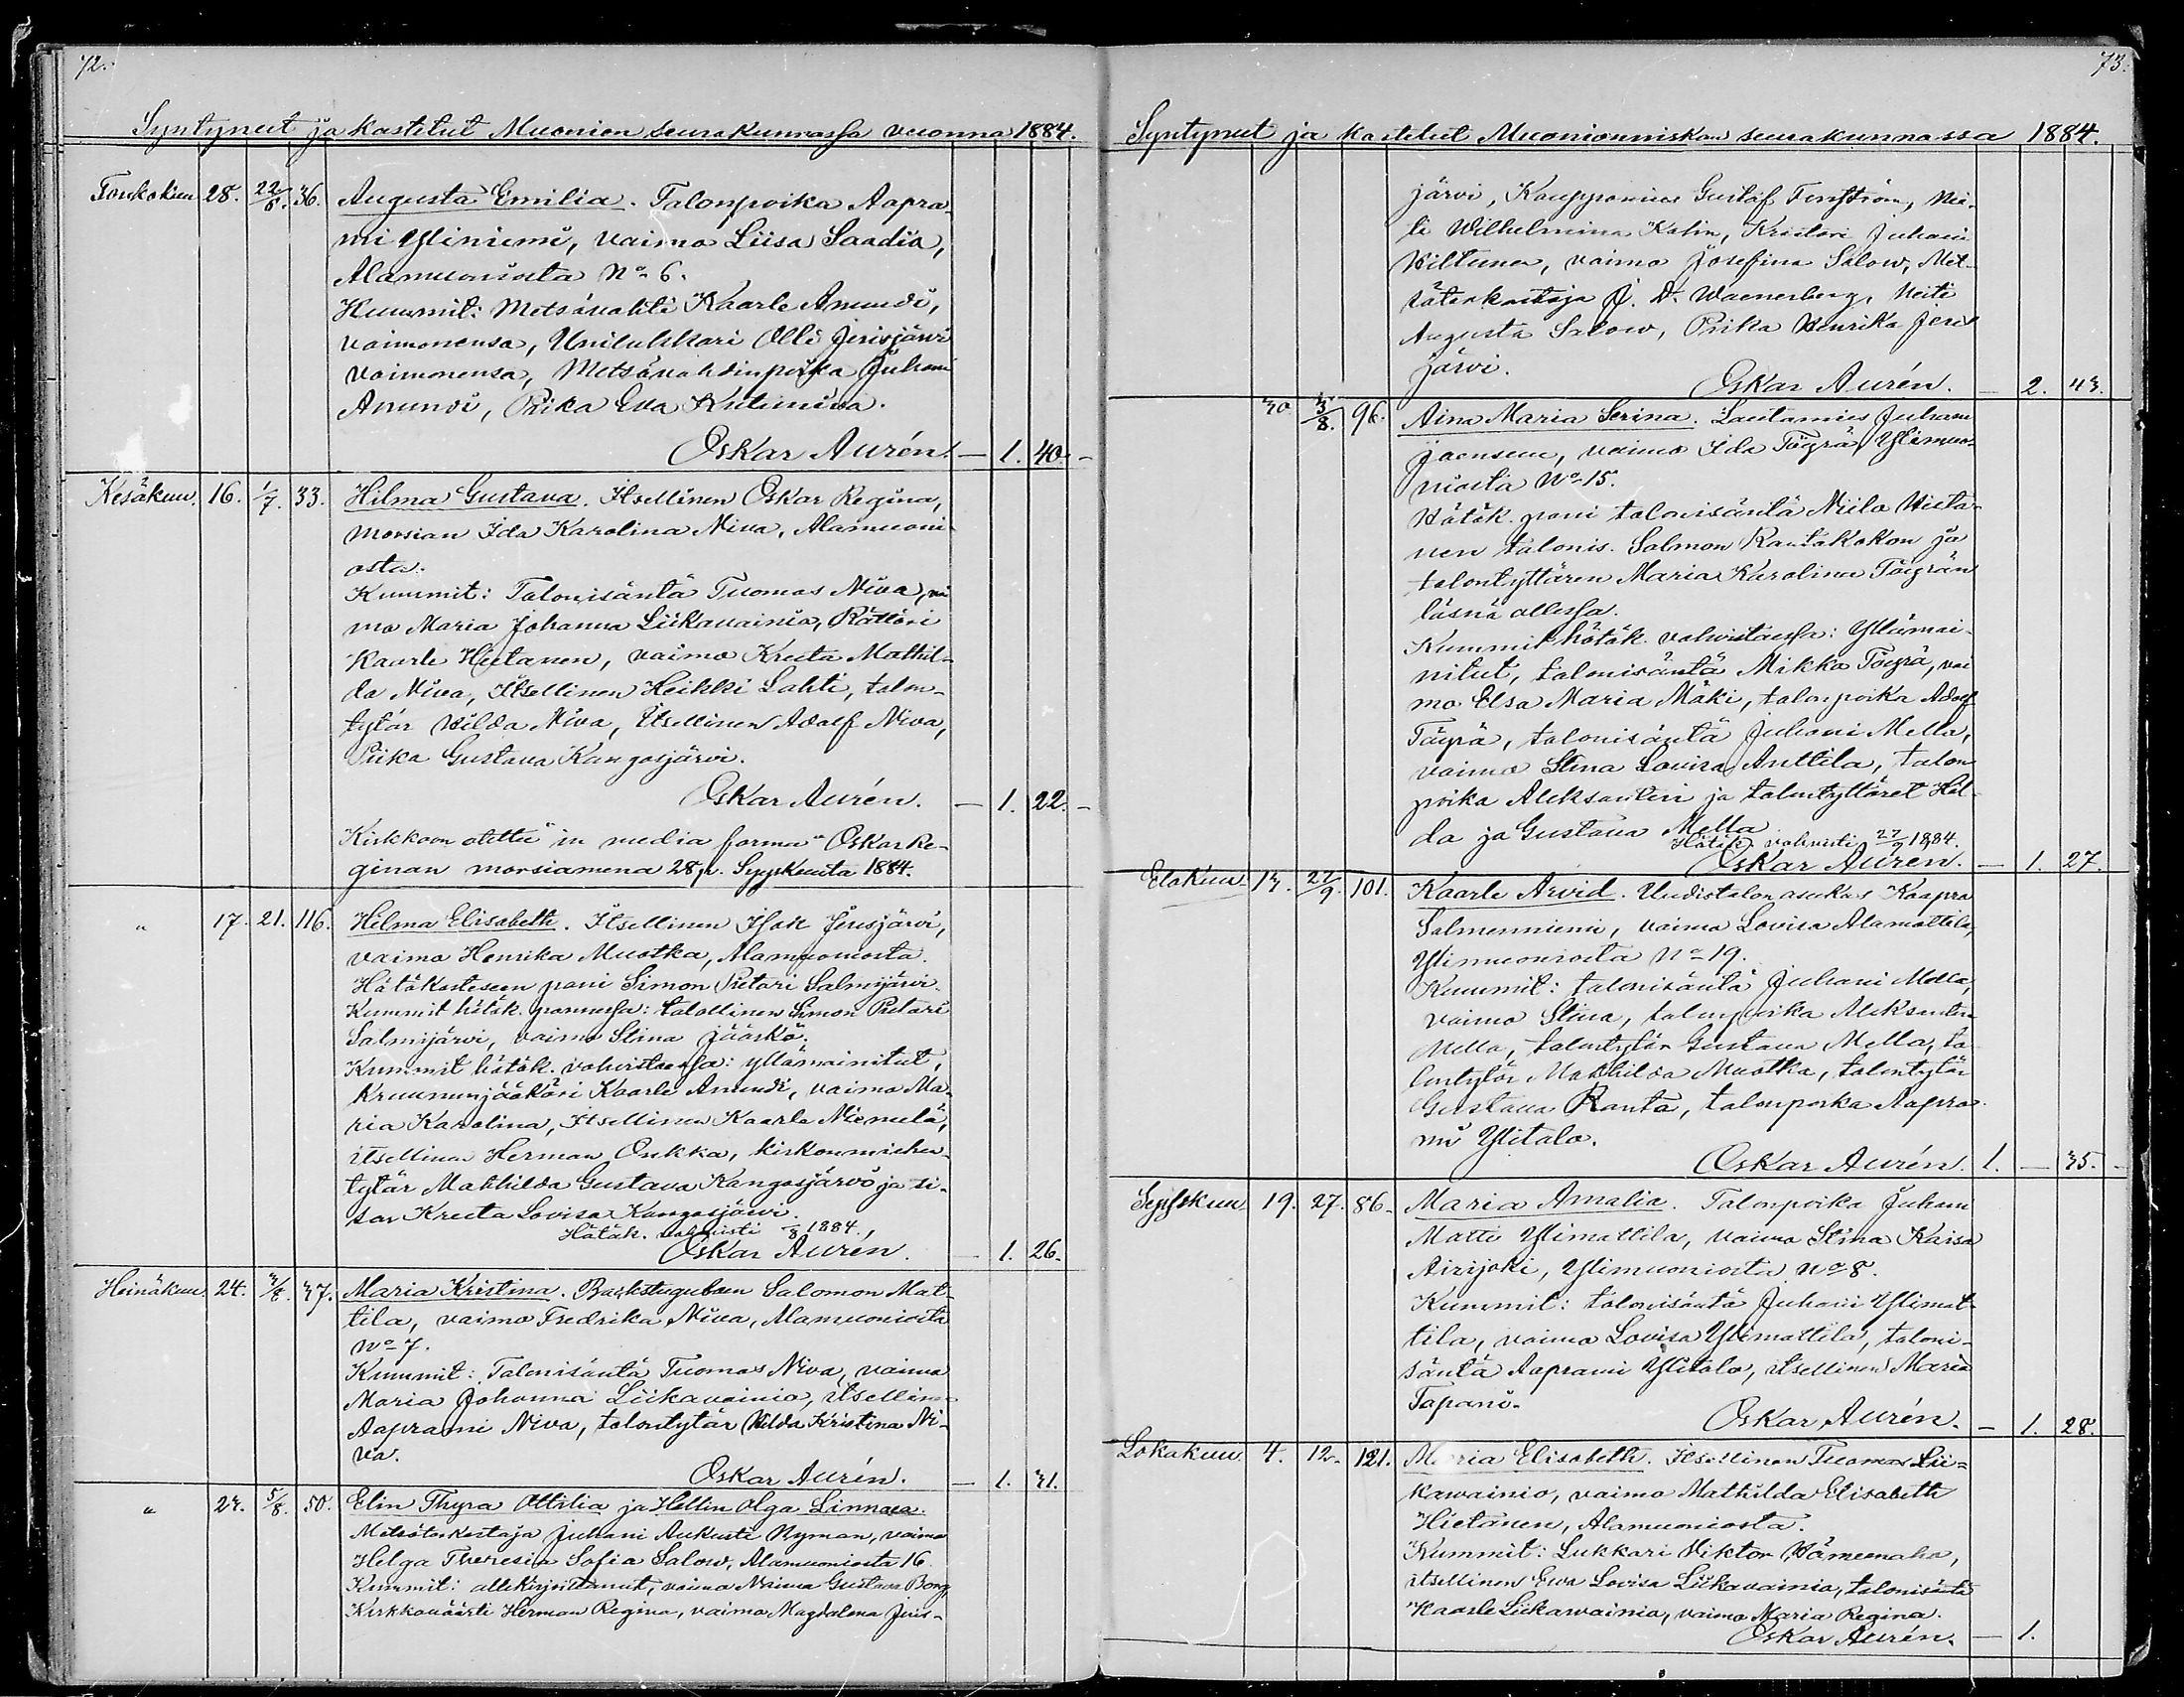 72.
Syntyneet ja kastetut Muonion seurakunnassa vuonna 1884.
Toukokuu 28. 22/6. 36. Augusta Emilia. Talonpoika Aapra-
mi Yliniemi, vaimo Liisa Saadio,
Alamuoniosta No 6.
Kummit: Metsävahti Kaarle Anundi,
vaimonensa, Unilukkari Olli Jerisjärvi
vaimonensa, Metsävahdinpoika Juhani
Anundi, Piika Eva Kutuniva.
Oskar Aurén. — 1. 40. —
Kesäkuu. 16. 1/7. 33. Hilma Gustava. Itsellinen Oskar Regina,
morsian Ida Karolina Niva, Alamuoni-
osta.
Kummit: Talonisäntä Tuomas Niva, vai
mo Maria Johanna Liikavainio, Rättöri
Kaarle Hietanen, vaimo Kreeta Mathil-
da Niva, Itsellinen Heikki Lahti, talon-
tytär Hilda Niva, Itsellinen Adolf Niva,
Piika Gustava Kangosjärvi.
Oskar Aurén. — 1. 22. —
Kirkkoon otettu "in media forma" Oskar Re-
ginan morsiamena 28 p. Syyskuuta 1884.
" 17. 21. 116. Hilma Elisabeth. Itsellinen Isak Jerisjärvi,
vaimo Henrika Muotka, Alamuoniosta.
Hätäkasteseen pani Simon Pietari Salmijärvi.
Kummit hätäk. pannessa: talollinen Simon Pietari
Salmijärvi, vaimo Stina Jääskö.
Kummit hätäk. vahvistaessa: yllämainitut,
Kruununjääkäri Kaarle Anundi, vaimo Ma-
ria Karolina, Itsellinen Kaarle Niemelä,
itsellinen Herman Oukka, kirkonmiehen
tytär Mathilda Gustava Kangosjärvi ja si-
sar Kreeta Lovisa Kangosjärvi.
Hätäk. vahvisti /8 1884.,
Oskar Aurén. — 1. 26.
Heinäkuu 24. 3/8. 37. Maria Kristina. Backstugulaen Salomon Mat-
tila, vaimo Fredrika Niva, Alamuoniosta
No 7.
Kummit: Talonisäntä Tuomas Niva, vaimo
Maria Johanna Liikavainio, itsellinen
Aaprami Niva, talontytär Hilda Kristina Ni-
va.
Oskar Aurén. — 1. 31.
" 27. 5/8. 50. Elin Thyra Ottilia ja Hellin Olga Linnaea.
Metsätarkastaja Juhani Aukusti Nyman, vaimo
Helga Theresia Sofia Salow, Alamuoniosta 16.
Kummit: allekirjoittanut, vaimo Naima Gustava Bong,
Kirkkoväärti Herman Regina, vaimo Magdalena Jeris-
73.
Syntynet ja kastetut Muonionniskan seurakunnassa 1884.
järvi, Kauppamies Gustaf Forsström, Nei-
ti Wilhelmina Kohn, Kraatari Juhani
Wiltuna, vaimo Josefina Salow, Met-
sätarkastaja J. D. Waenerberg, Neiti
Augusta Salow, Piika Henrika Jeris
järvi.
Oskar Aurén. — 2. 43.
30 /8. 96. Aina Maria Serina. Lautamies Juhani
Joensuu, vaimo Ida Töyrä, Ylimuo-
niosta No 15.
Hätäk. pani talonisäntä Niilo Hieta-
nen talonis. Salmon Rautakokon ja
talontyttären Maria Karolina Töyrän
läsnä ollessa.
Kummit hätäk. vahvistaessa: Yllämai-
nitut, talonisäntä Mikko Töyrä, vai
mo Elsa Maria Mäki, talonpoika Adolf
Töyrä, talonisäntä Juhani Mella,
vaimo Stina Lovisa Anttila, talon
poika Aleksanteri ja talontyttäret Hil-
da ja Gustava Mella.
Hätäk. vahvisti 27/9 1884.
Oskar Aurén. — 1. 27.
Elokuu 13. 27/9. 101. Kaarle Arvid. Uudistalon asukas Kaapra
Salmenniemi, vaimo Lovisa Alamattila,
Ylimuoniosta No 19.
Kummit: talonisäntä Juhani Mella,
vaimo Stina, talonpoika Aleksanteri
Mella, talontytär Gustava Mella, ta-
lontytär Mathilda Muotka, talontytär
Gustava Ranta, talonpoika Aapra-
mi Ylitalo.
Oskar Aurén. 1. — 35. —
Syyskuu 19. 27. 86. Maria Amalia. Talonpoika Juhani
Matti Ylimattila, vaimo Stina Kaisa
Airijoki, Ylimuoniosta No 8.
Kummit: talonisäntä Juhani Ylimat-
tila, vaimo Lovisa Ylimattila, taloni-
säntä Aaprami Ylitalo, itsellinen Maria
Tapani.
Oskar Aurén. — 1. 28.
Lokakuu. 4. 12. 121. Maria Elisabeth. Itsellinen Tuomas Lii-
kawainio, vaimo Mathilda Elisabeth
Hietanen, Alamuoniosta.
Kummit: Lukkari Viktor Hämeenaho,
itsellinen Ewa Lovisa Liikavainio, talonisäntä
Kaarle Liikavainio, vaimo Maria Regina.
Oskar Aurén. — 1.